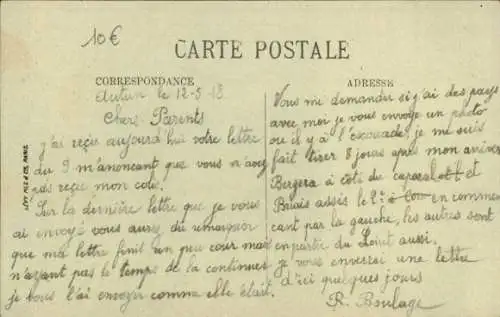 10€
CARTE POSTALE
CORRESPONDANCE
Autun le 12-5 13
Chers Parents
j'ai reçu aujourd'hui votre lettre
du 9 m'anoncant que vous n'avez
pas reçue mon colis.
Sur la dernière lettre que je vous
ai envoyé vous aurez du remarquer
que ma lettre finit un peu court mais
n'ayant pas le temps de la continuer
je vous l'ai envoyer comme elle était.
ADRESSE
Vous me demander si j'ai des pays
avec moi je vous envoye un photo
ou il y à l'escouade, je me suis
fait tirer 8 jours après mon arrivée
Bergera à côté du caporal et
Balais assis le 2e à en commen
cant par la gauche, les autres sont
en partie du Loiret aussi.
je vous enverai une lettre
d'ici quelques jours
R. Boulage